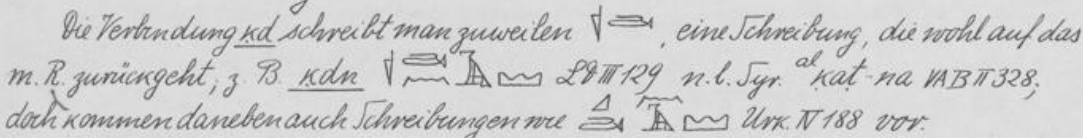 Die Verbindung kd schreibt man zuweilen 𓌪, eine Schreibung, die wohl auf das
m. R. zurückgeht; z. B. kdn LD III 129 n. l. Syr. al kat-na VAB II 328;
doch kommen daneben auch Schreibungen wie Urk. IV 188 vor.